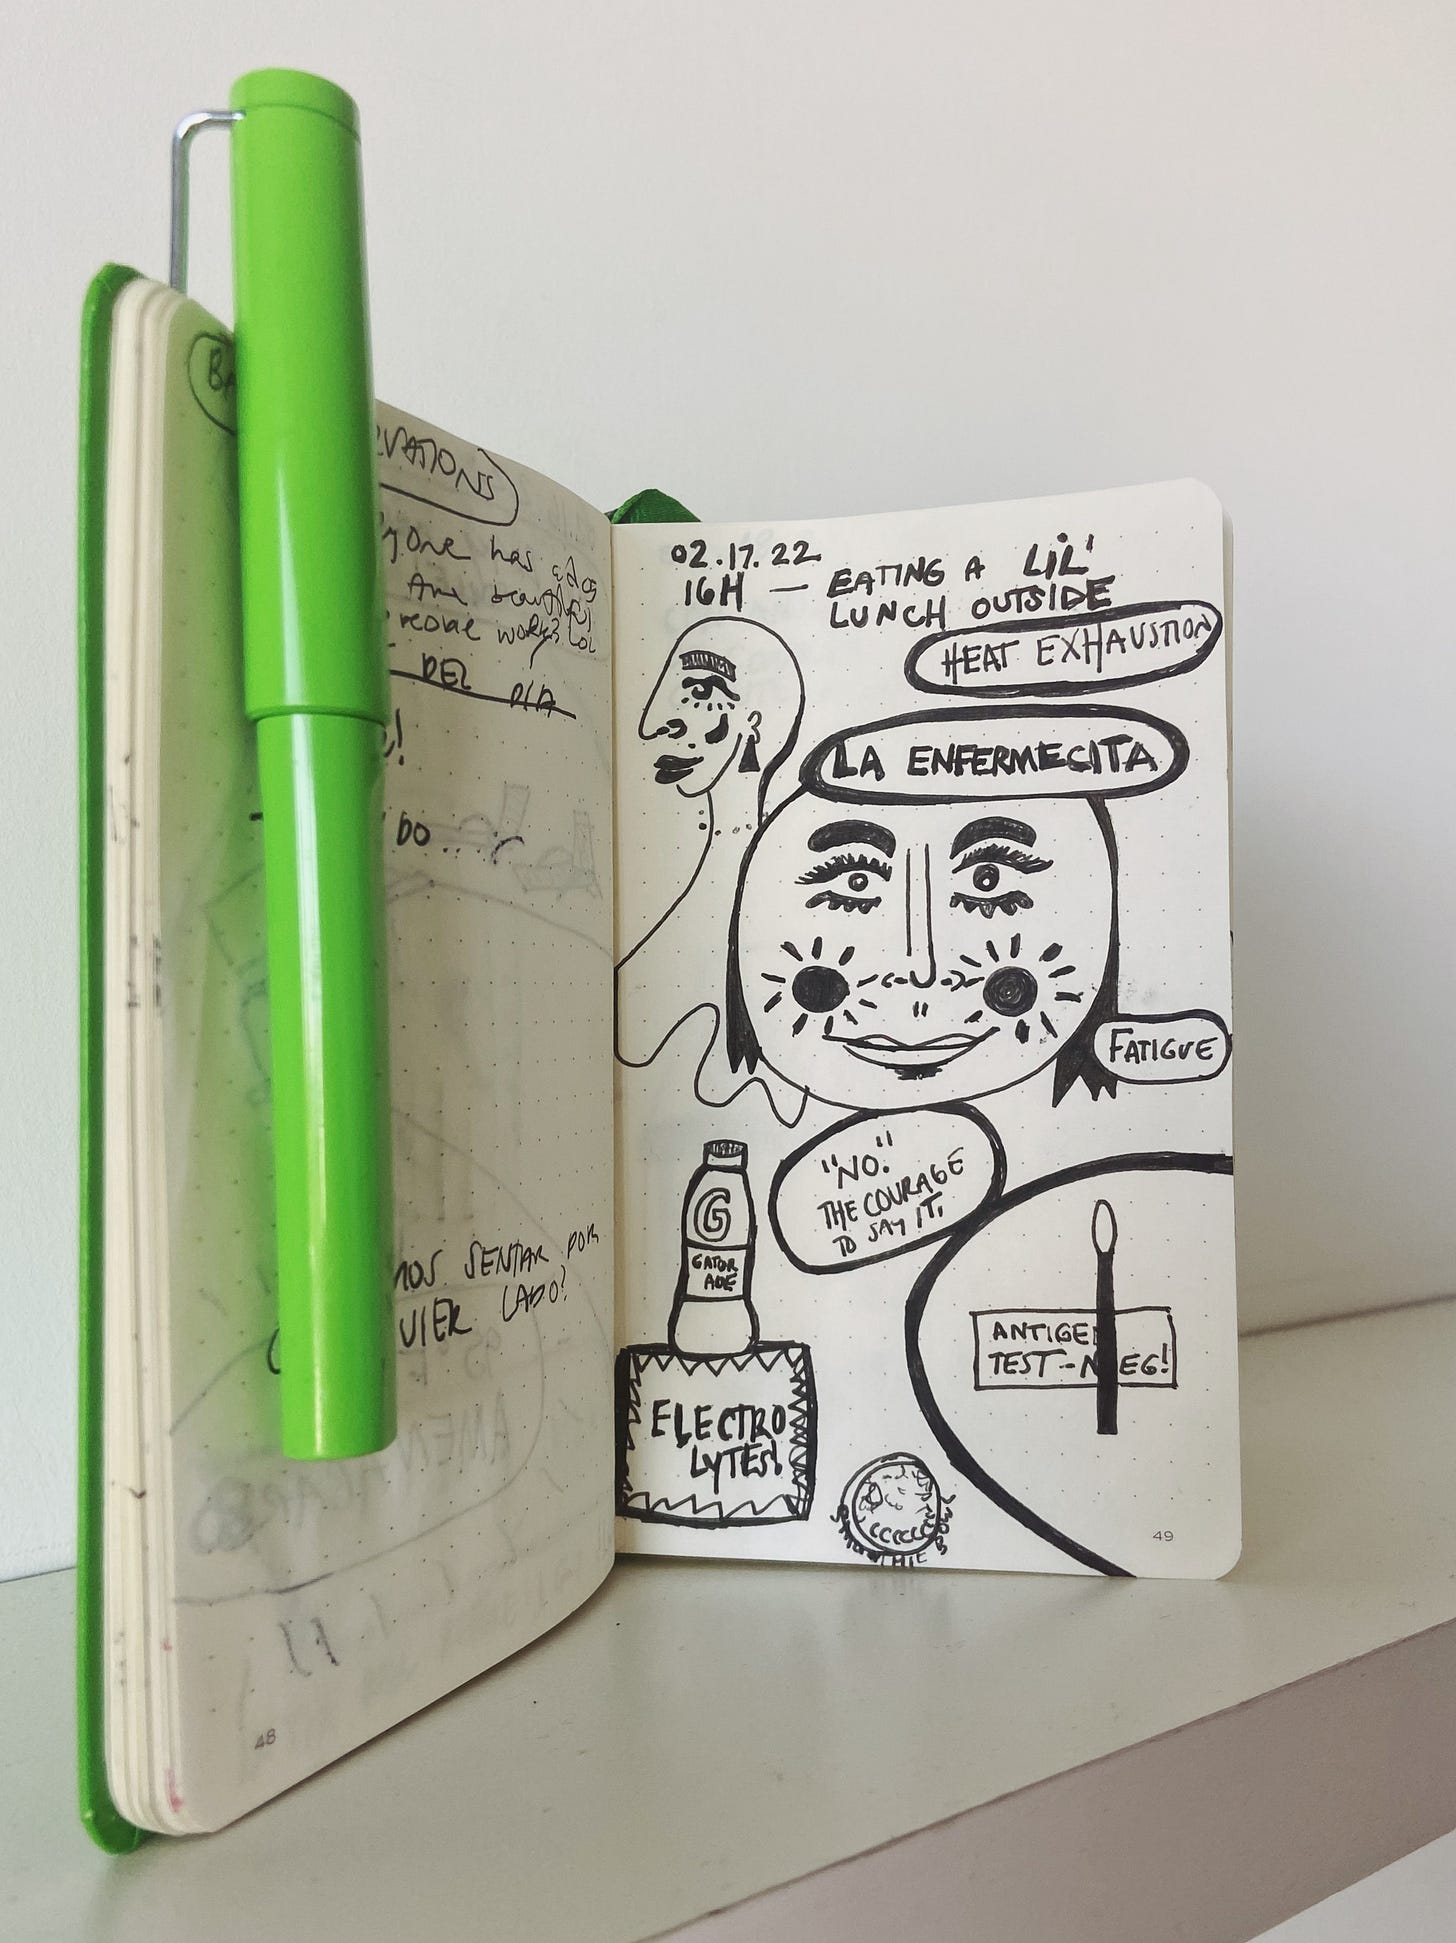 VATIONS
one has
And beautiful
work? LOL
DEL DIA
!
DO...
SENTAR POR
LADO?
48
02.17.22
16H — EATING A LIL'
LUNCH OUTSIDE
HEAT EXHAUSTION
LA ENFERMECITA
FATIGUE
"NO."
THE COURAGE
TO SAY IT.
G
GATOR
ADE
ELECTRO
LYTES!
ANTIGE
TEST-NEG!
BOWL
49